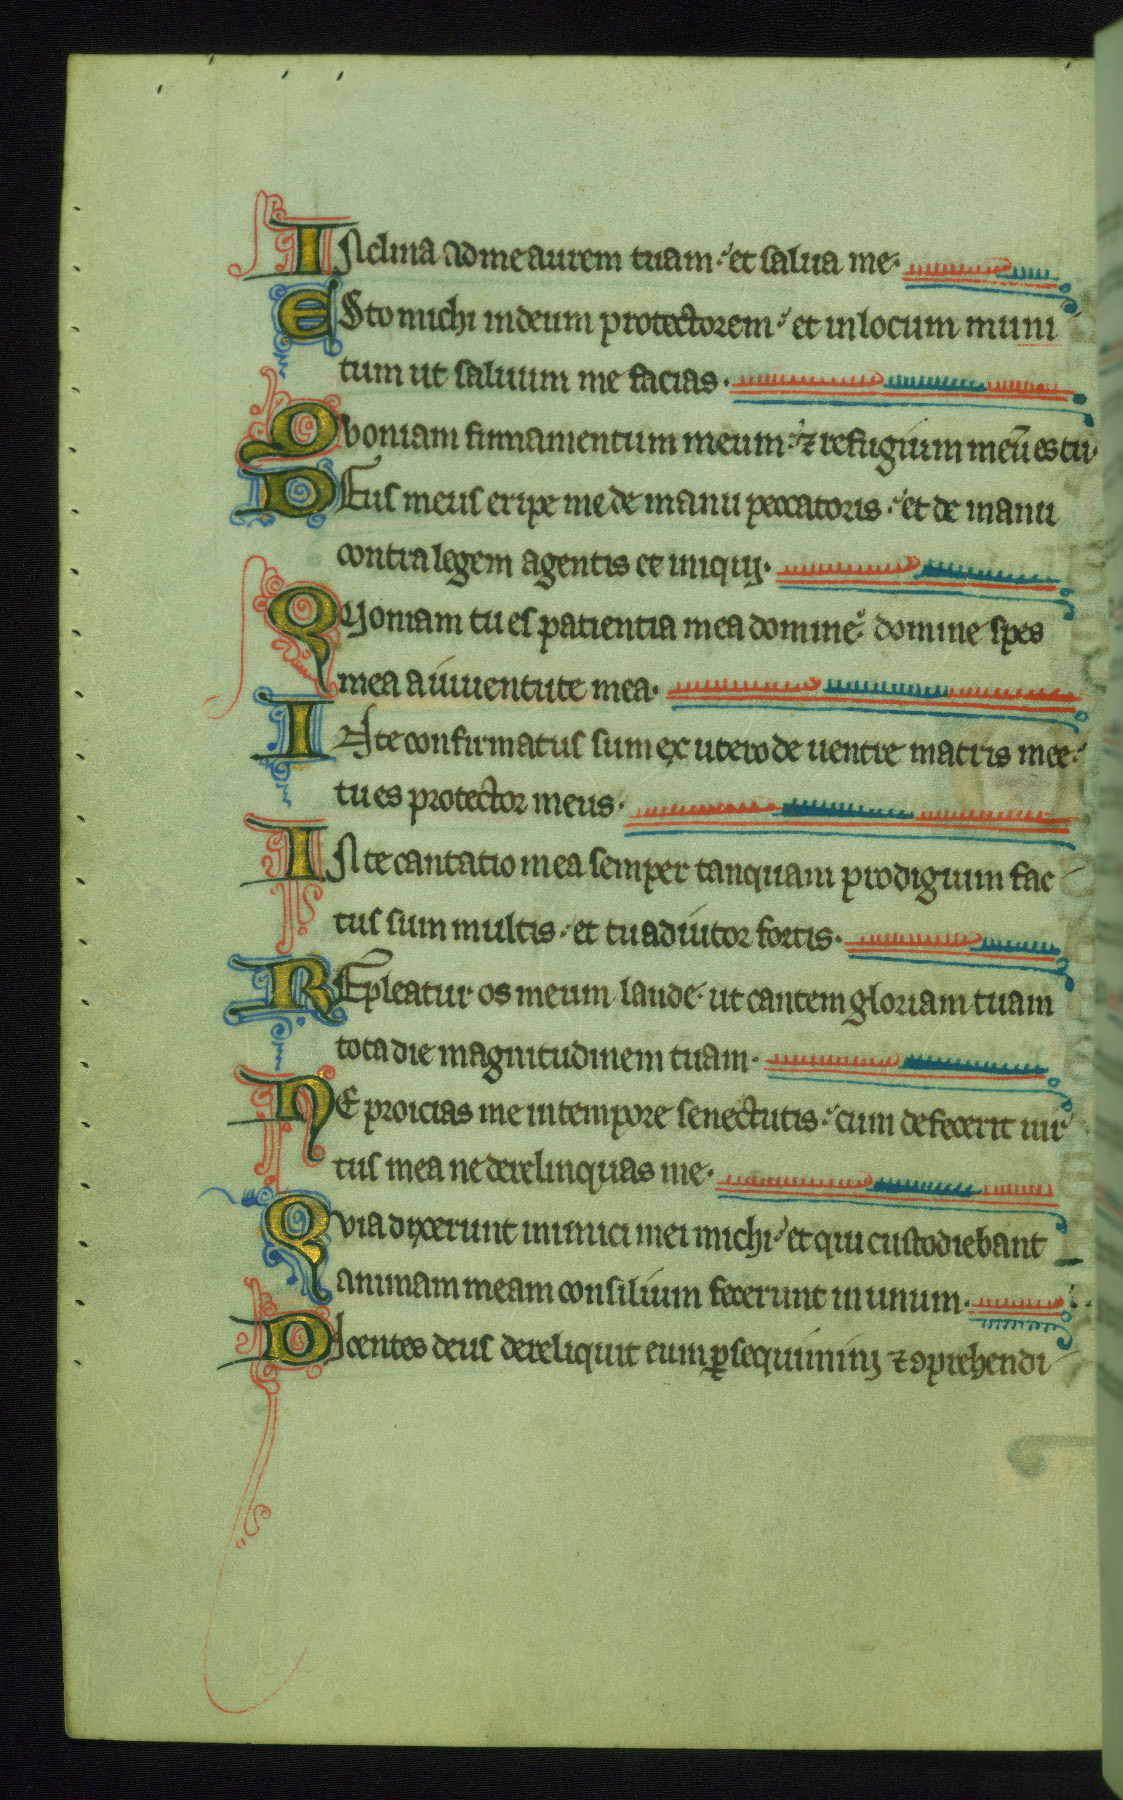 INclina ad me aurem tuam· et salua me·
ESto michi in deum protectorem· et in locum muni
tum ut saluum me facias·
Quoniam firmamentum meum· ⁊ refugium meū es tu·
DEus meus eripe me de manu peccatoris· et de manu
contra legem agentis et iniqui·
QUoniam tu es patientia mea domine· domine spes
mea a iuuentute mea·
IN te confirmatus sum ex utero de uentre matris mee·
tu es protector meus·
IN te cantatio mea semper tanquam prodigium fac
tus sum multis· et tu adiutor fortis·
REpleatur os meum laude· ut cantem gloriam tuam
tota die magnitudinem tuam·
NE proicias me in tempore senectutis· cum defecerit uir
tus mea ne derelinquas me·
Quia dixerunt inimici mei michi· et qui custodiebant
animam meam consilium fecerunt in unum·
DIcentes deus dereliquit eum ꝑsequimini ⁊ ꝯprehendi